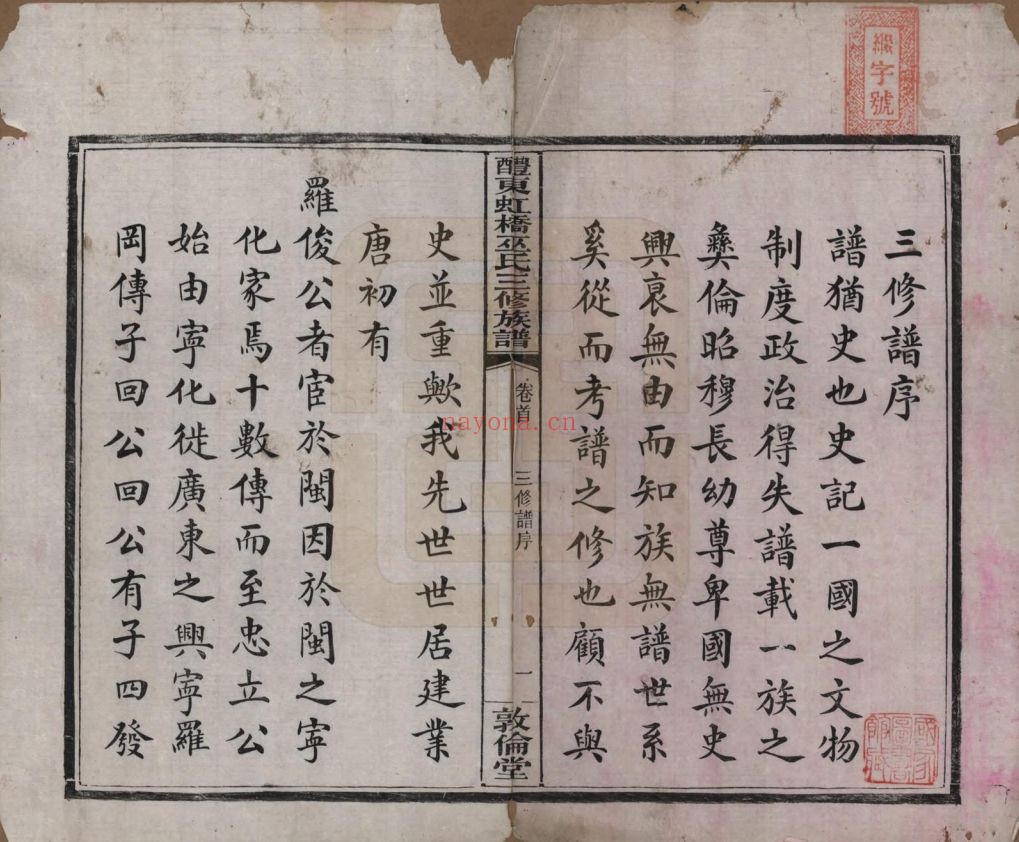 緞字號
三修譜序
譜猶史也史記一國之文物
制度政治得失譜載一族之
彝倫昭穆長幼尊卑國無史
興衰無由而知族無譜世系
奚從而考譜之修也顧不與
醴東虹橋巫氏三修族譜
卷首
三修譜序
一
敦倫堂
史並重歟我先世世居建業
唐初有
羅俊公者宦於閩因於閩之寧
化家焉十數傳而至忠立公
始由寧化徙廣東之興寧羅
岡傳子回公回公有子四發
國家圖書館藏
nayona.cn